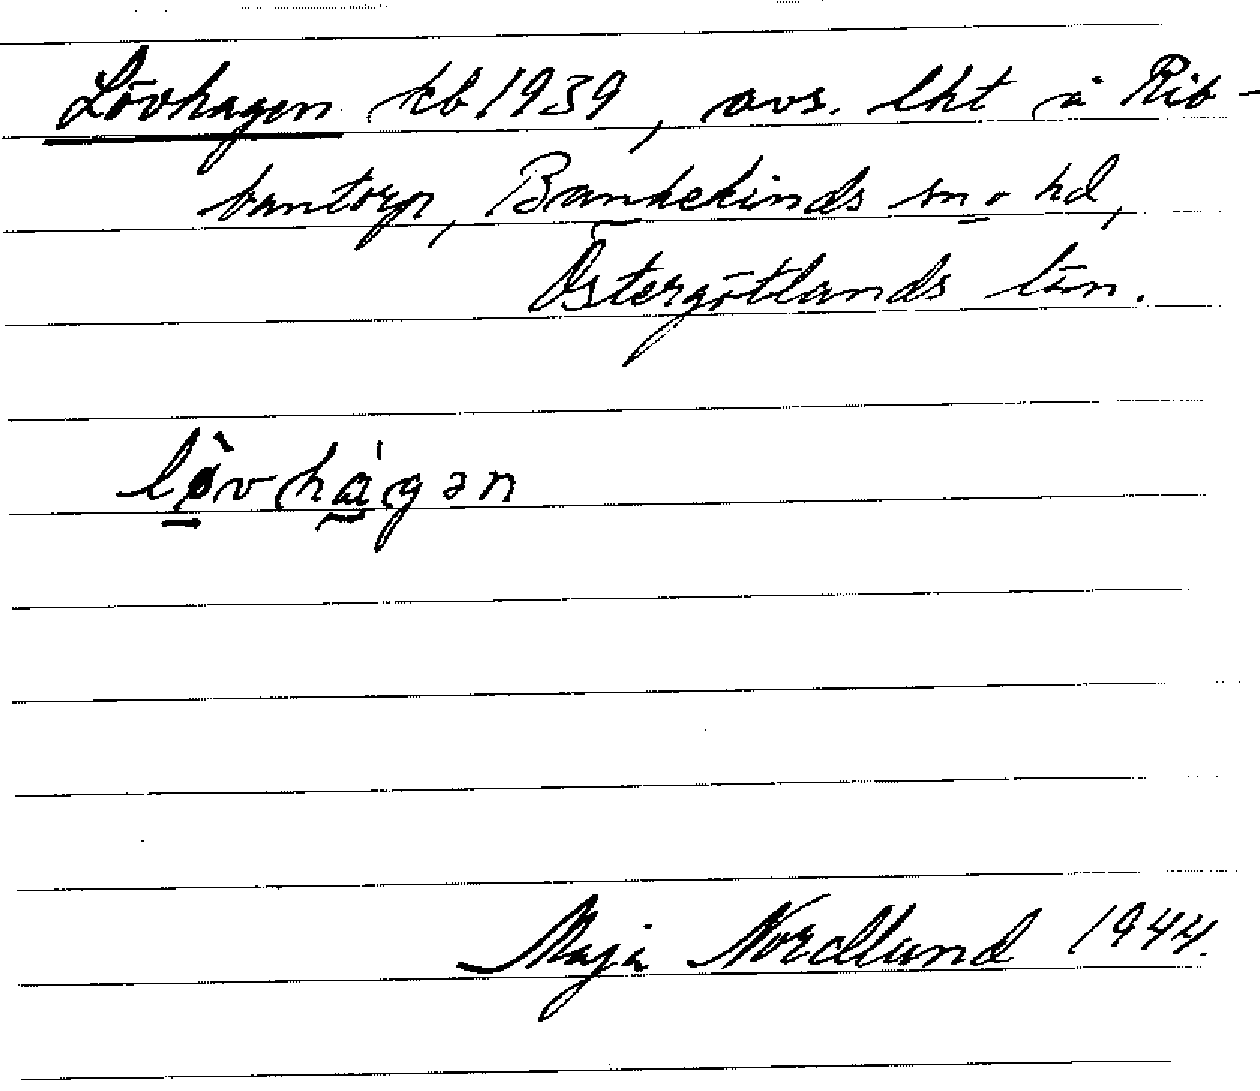 Lövhagen kb 1939, avs. lht å Rib-
bantorp, Bankekinds sn o hd,
Östergötlands län.
lø̀vhágən
Maja Nordlund 1944.